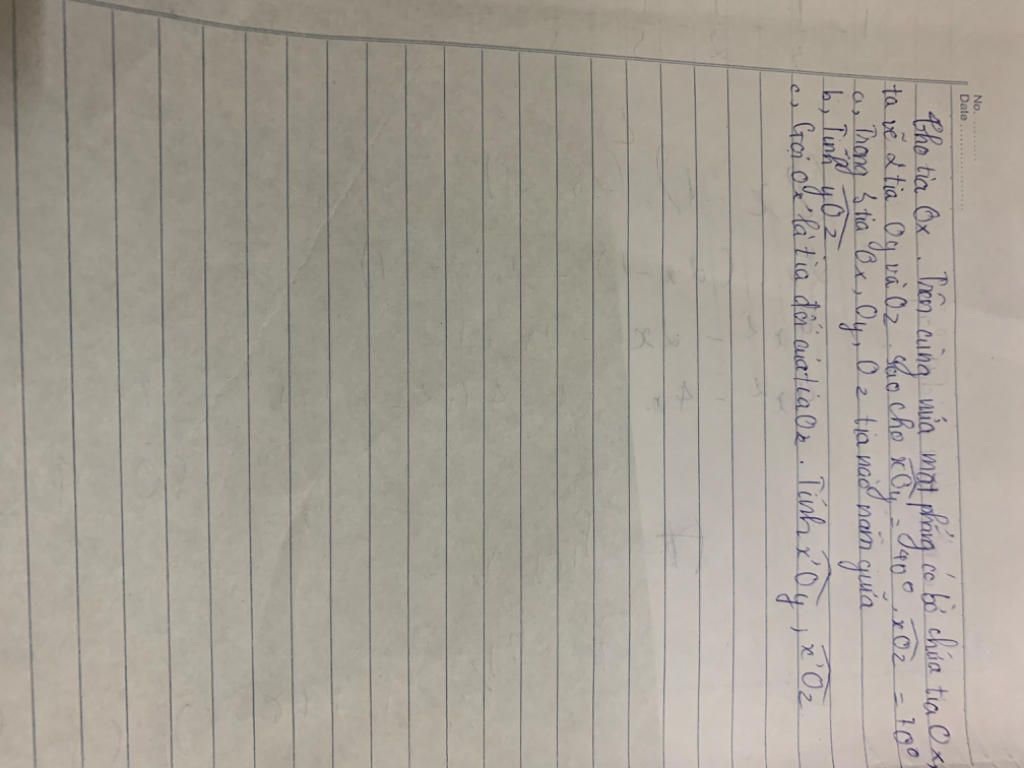 No. ............
Date .....................
Cho tia Ox. Trên cùng nửa mặt phẳng có bờ chứa tia Ox,
ta vẽ 2 tia Oy và Oz sao cho xOy = 40°, xOz = 70°
a, Trong 3 tia Ox, Oy, Oz tia nào nằm giữa
b, Tính yOz
c, Gọi Ox' là tia đối của tia Ox. Tính x'Oy, x'Oz